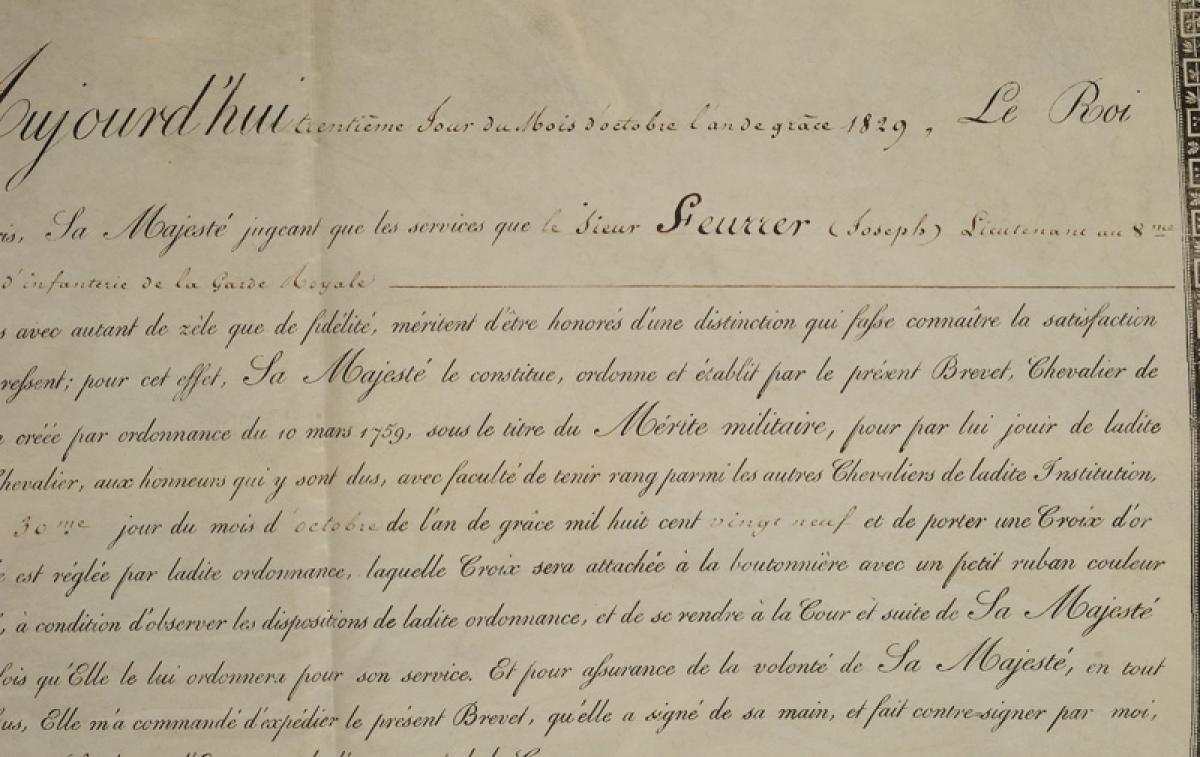 Aujourd'hui trentième Jour du Mois d'octobre l'an de grâce 1829, Le Roi
Sa Majesté jugeant que les services que le Sieur Feurrer (Joseph) Lieutenant au 8me
d'infanterie de la Garde Royale
avec autant de zèle que de fidélité, méritent d'être honorés d'une distinction qui fasse connaître la satisfaction
ressent; pour cet effet, Sa Majesté le constitue, ordonne et établit par le présent Brevet, Chevalier de
créée par ordonnance du 10 mars 1759, sous le titre du Mérite militaire, pour par lui jouir de ladite
Chevalier, aux honneurs qui y sont dus, avec faculté de tenir rang parmi les autres Chevaliers de ladite Institution,
30me jour du mois d'octobre de l'an de grâce mil huit cent vingt neuf et de porter une Croix d'or
est réglée par ladite ordonnance, laquelle Croix sera attachée à la boutonnière avec un petit ruban couleur
, à condition d'observer les dispositions de ladite ordonnance, et de se rendre à la Cour et suite de Sa Majesté
fois qu'Elle le lui ordonnera pour son service. Et pour assurance de la volonté de Sa Majesté, en tout
Elle m'a commandé d'expédier le présent Brevet, qu'elle a signé de sa main, et fait contre-signer par moi,